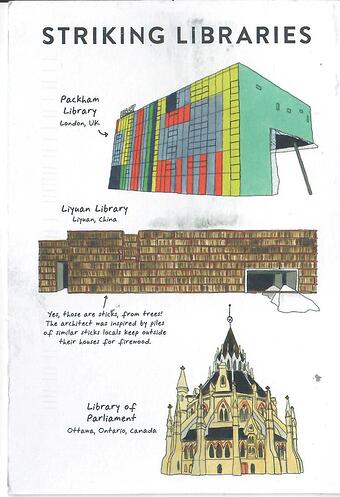 STRIKING LIBRARIES
Packham
Library
London, UK
Liyuan Library
Liyuan, China
Yes, those are sticks, from trees!
The architect was inspired by piles
of similar sticks locals keep outside
their houses for firewood.
Library of
Parliament
Ottawa, Ontario, Canada